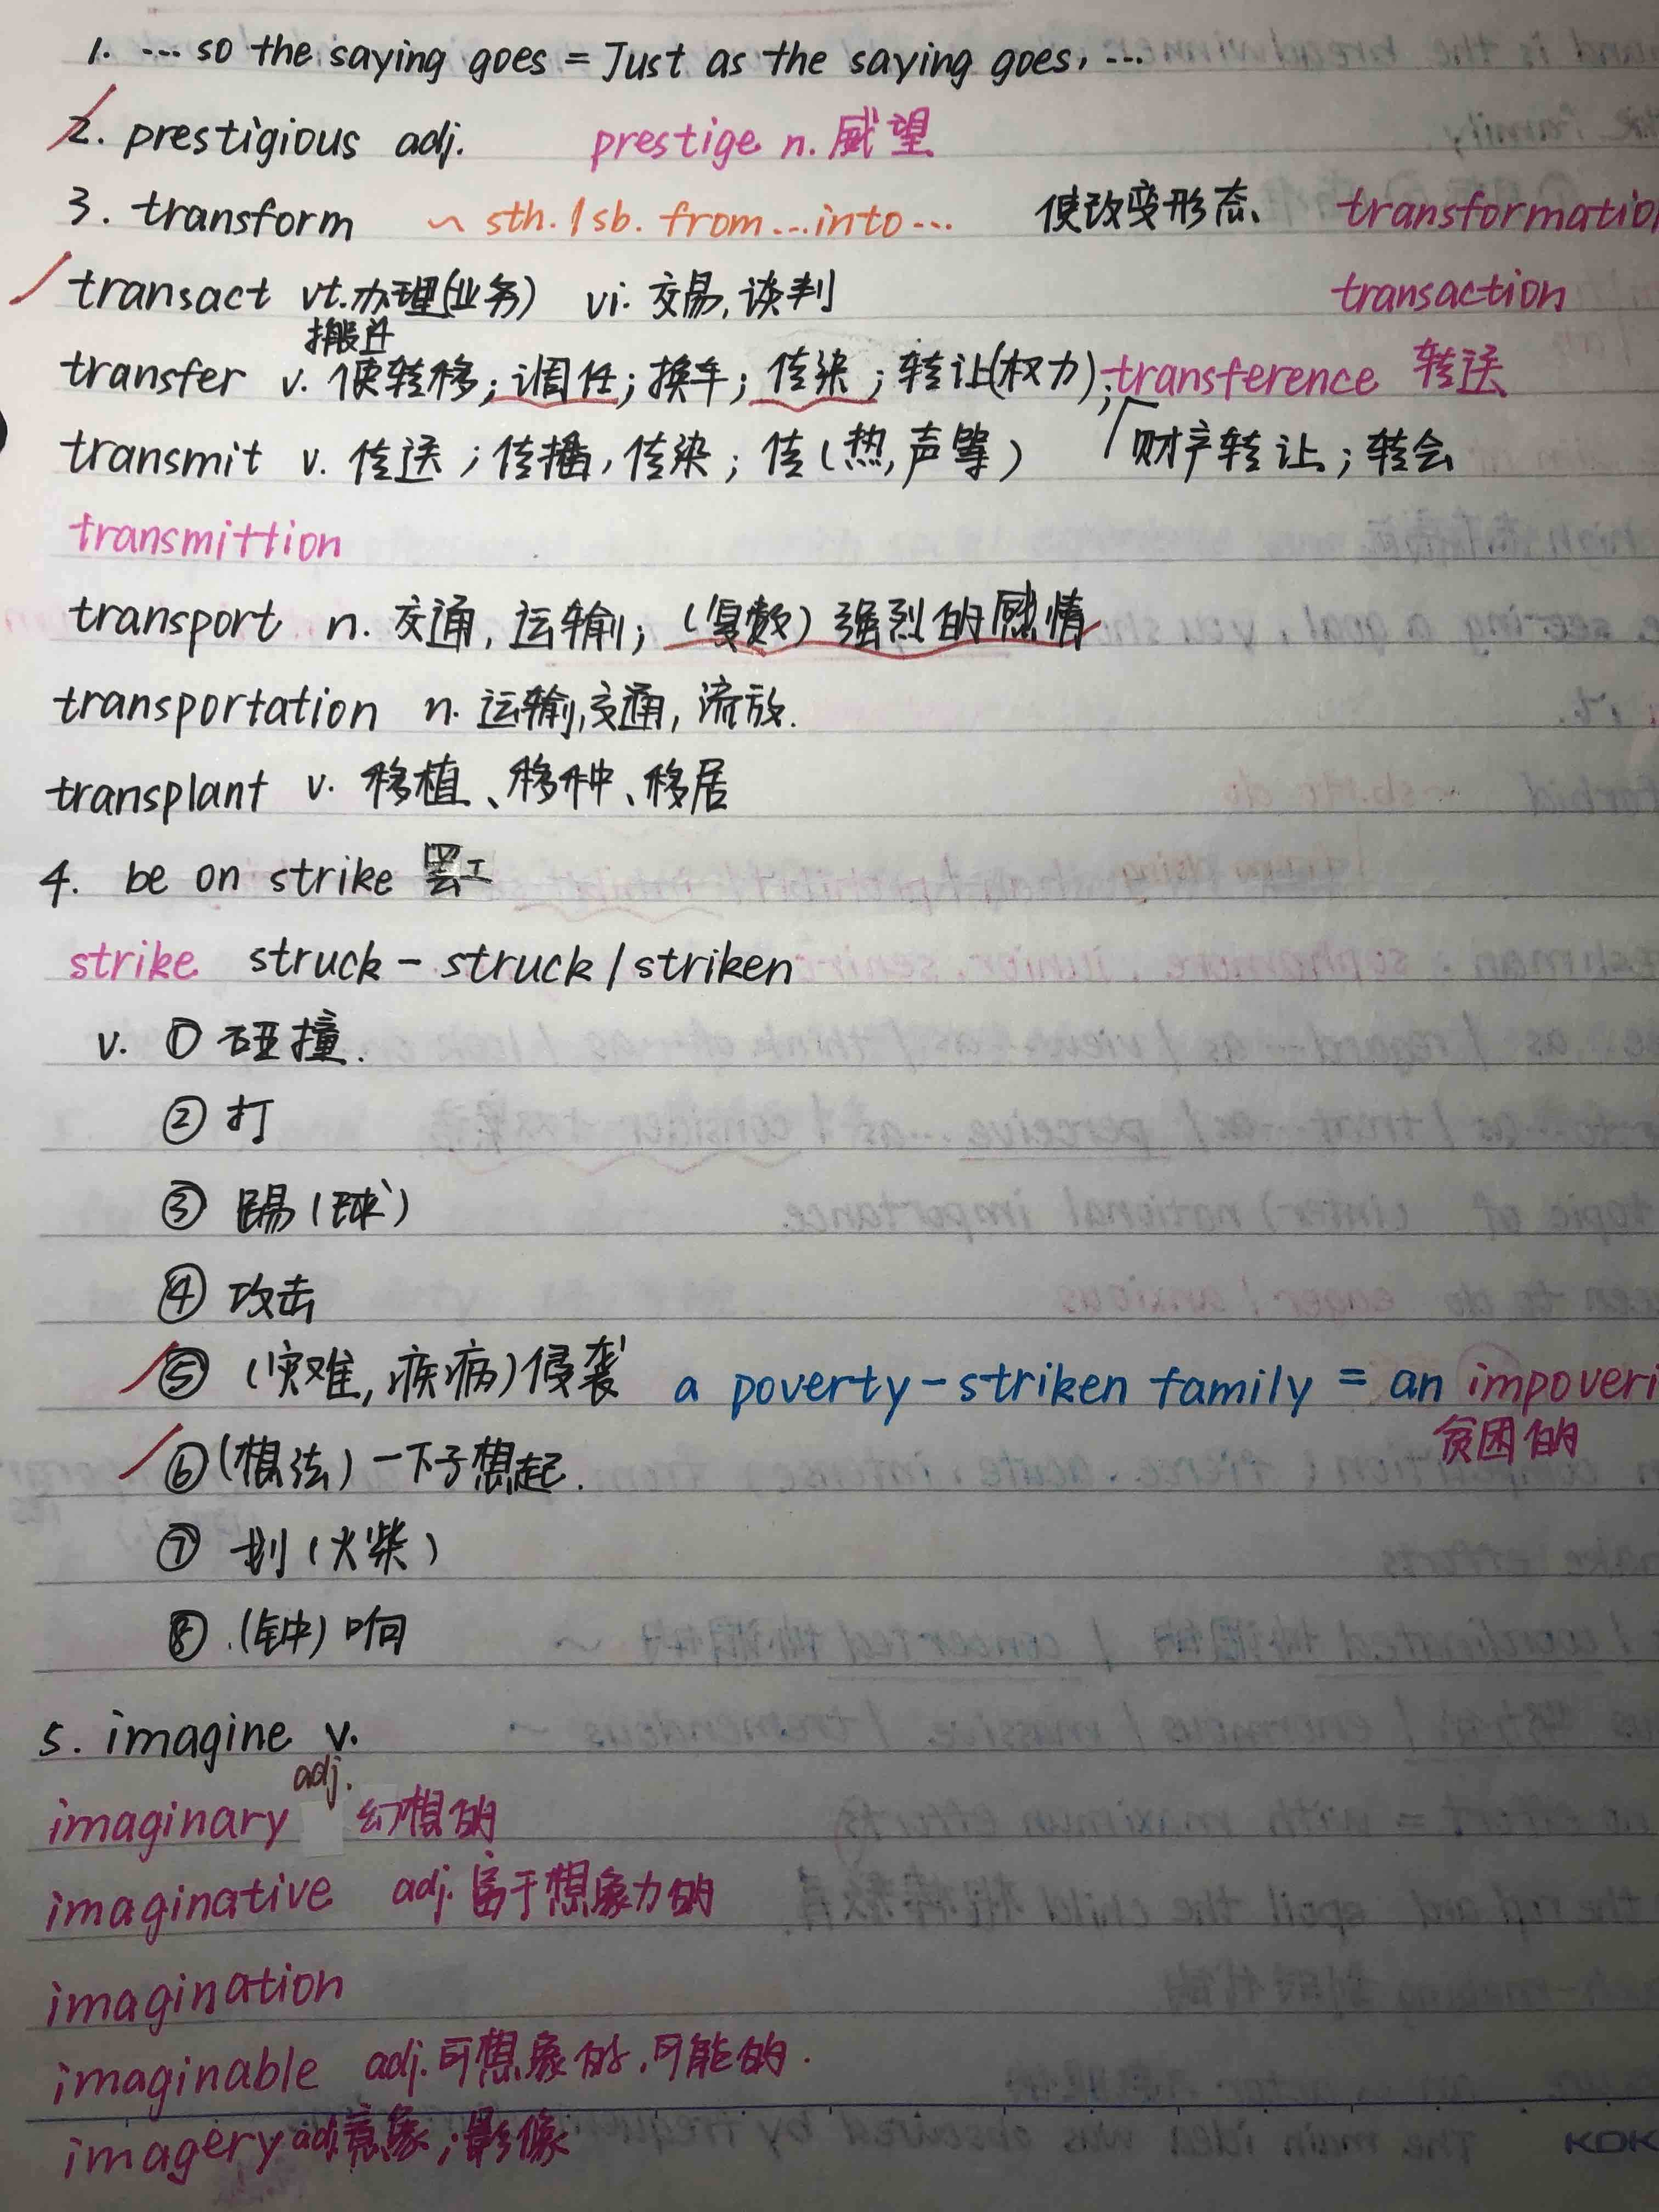 1. ... so the saying goes = Just as the saying goes, ...
2. prestigious adj. prestige n. 威望
3. transform ~ sth. / sb. from...into... 使改变形态、 transformatio
transact vt.办理(业务) vi. 交易,谈判 transaction
搬迁
transfer v. 使转移;调任;换车;传染;转让(权力); transference 转送
transmit v. 传送;传播,传染;传(热,声等) 财产转让;转会
transmittion
transport n. 交通,运输;(复数)强烈的感情
transportation n. 运输,交通,流放.
transplant v. 移植、移种、移居
4. be on strike 罢工
strike struck - struck / striken
v. ① 碰撞.
② 打
③ 踢(球)
④ 攻击
⑤ (灾难,疾病)侵袭 a poverty-striken family = an impoveri
贫困的
⑥(想法)一下子想起.
⑦ 划(火柴)
⑧.(钟)响
5. imagine v.
imaginary adj. 幻想的
imaginative adj. 富于想象力的
imagination
imaginable adj.可想象的,可能的.
imagery adj.意象;影像
KOK